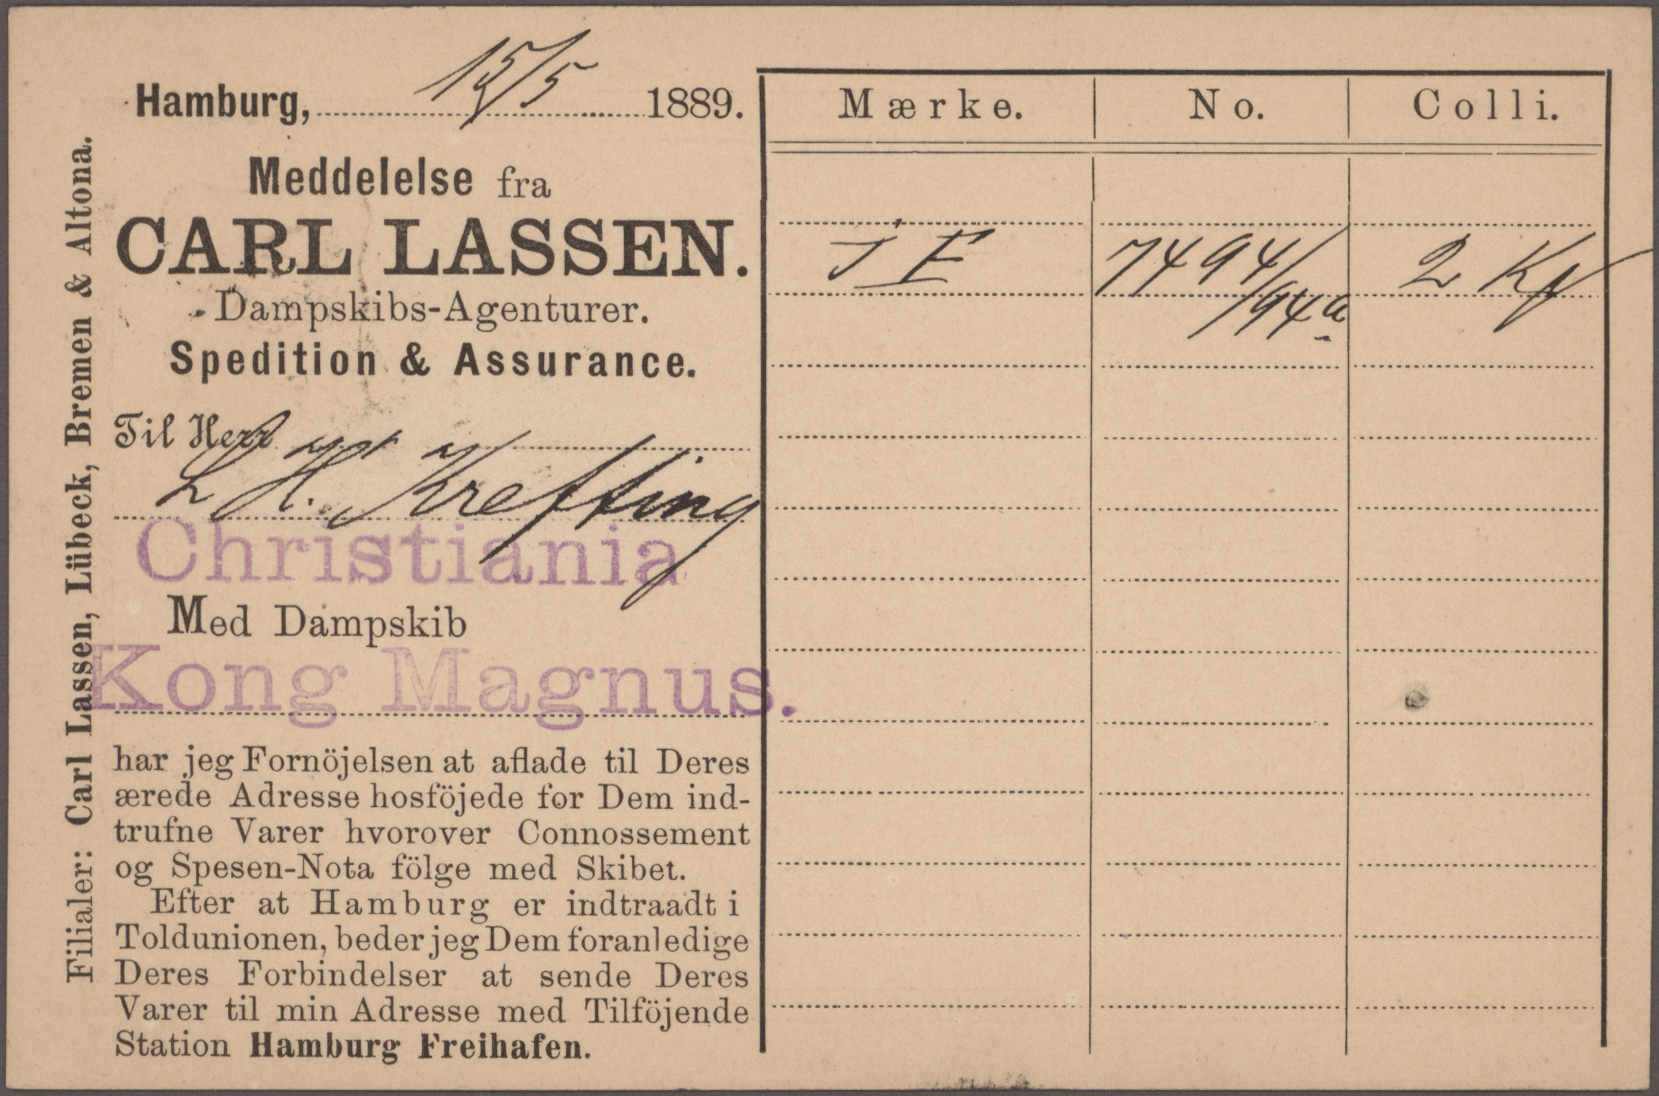 Hamburg, 15/5 1889.
Meddelelse fra
CARL LASSEN.
Dampskibs-Agenturer.
Spedition & Assurance.
Til Herr
L H. Krefting
Christiania
Med Dampskib
Kong Magnus.
har jeg Fornöjelsen at aflade til Deres
ærede Adresse hosföjede for Dem ind-
trufne Varer hvorover Connossement
og Spesen-Nota fölge med Skibet.
Efter at Hamburg er indtraadt i
Toldunionen, beder jeg Dem foranledige
Deres Forbindelser at sende Deres
Varer til min Adresse med Tilföjende
Station Hamburg Freihafen.
Filialer: Carl Lassen, Lübeck, Bremen & Altona.
Mærke. No. Colli.
J E 7494/ 2
/94a